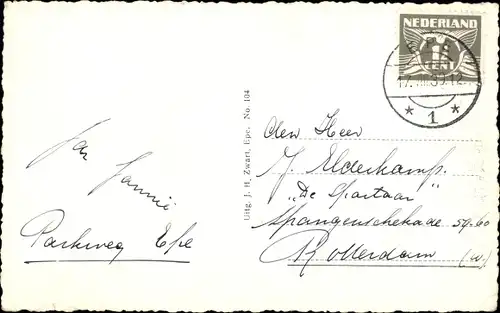 NEDERLAND
1
CENT
EPE
17.VIII.39.12
* 1 *
Uitg. J. H. Zwart, Epe. No. 104
Jannie
Parkweg Epe
den Heer
J. Elderkamp.
"De Spartaan"
Spangenschekade 59-60
Rotterdam (W.)